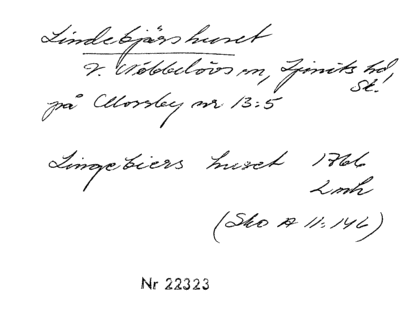 Lindebjärshuset
V. Nöbbelövs sn, Ljunits hd,
Sk.
på Mossby nr 13:5
Lingebiers huset 1766
Lmh
(Sko A 11:146)
Nr 22323